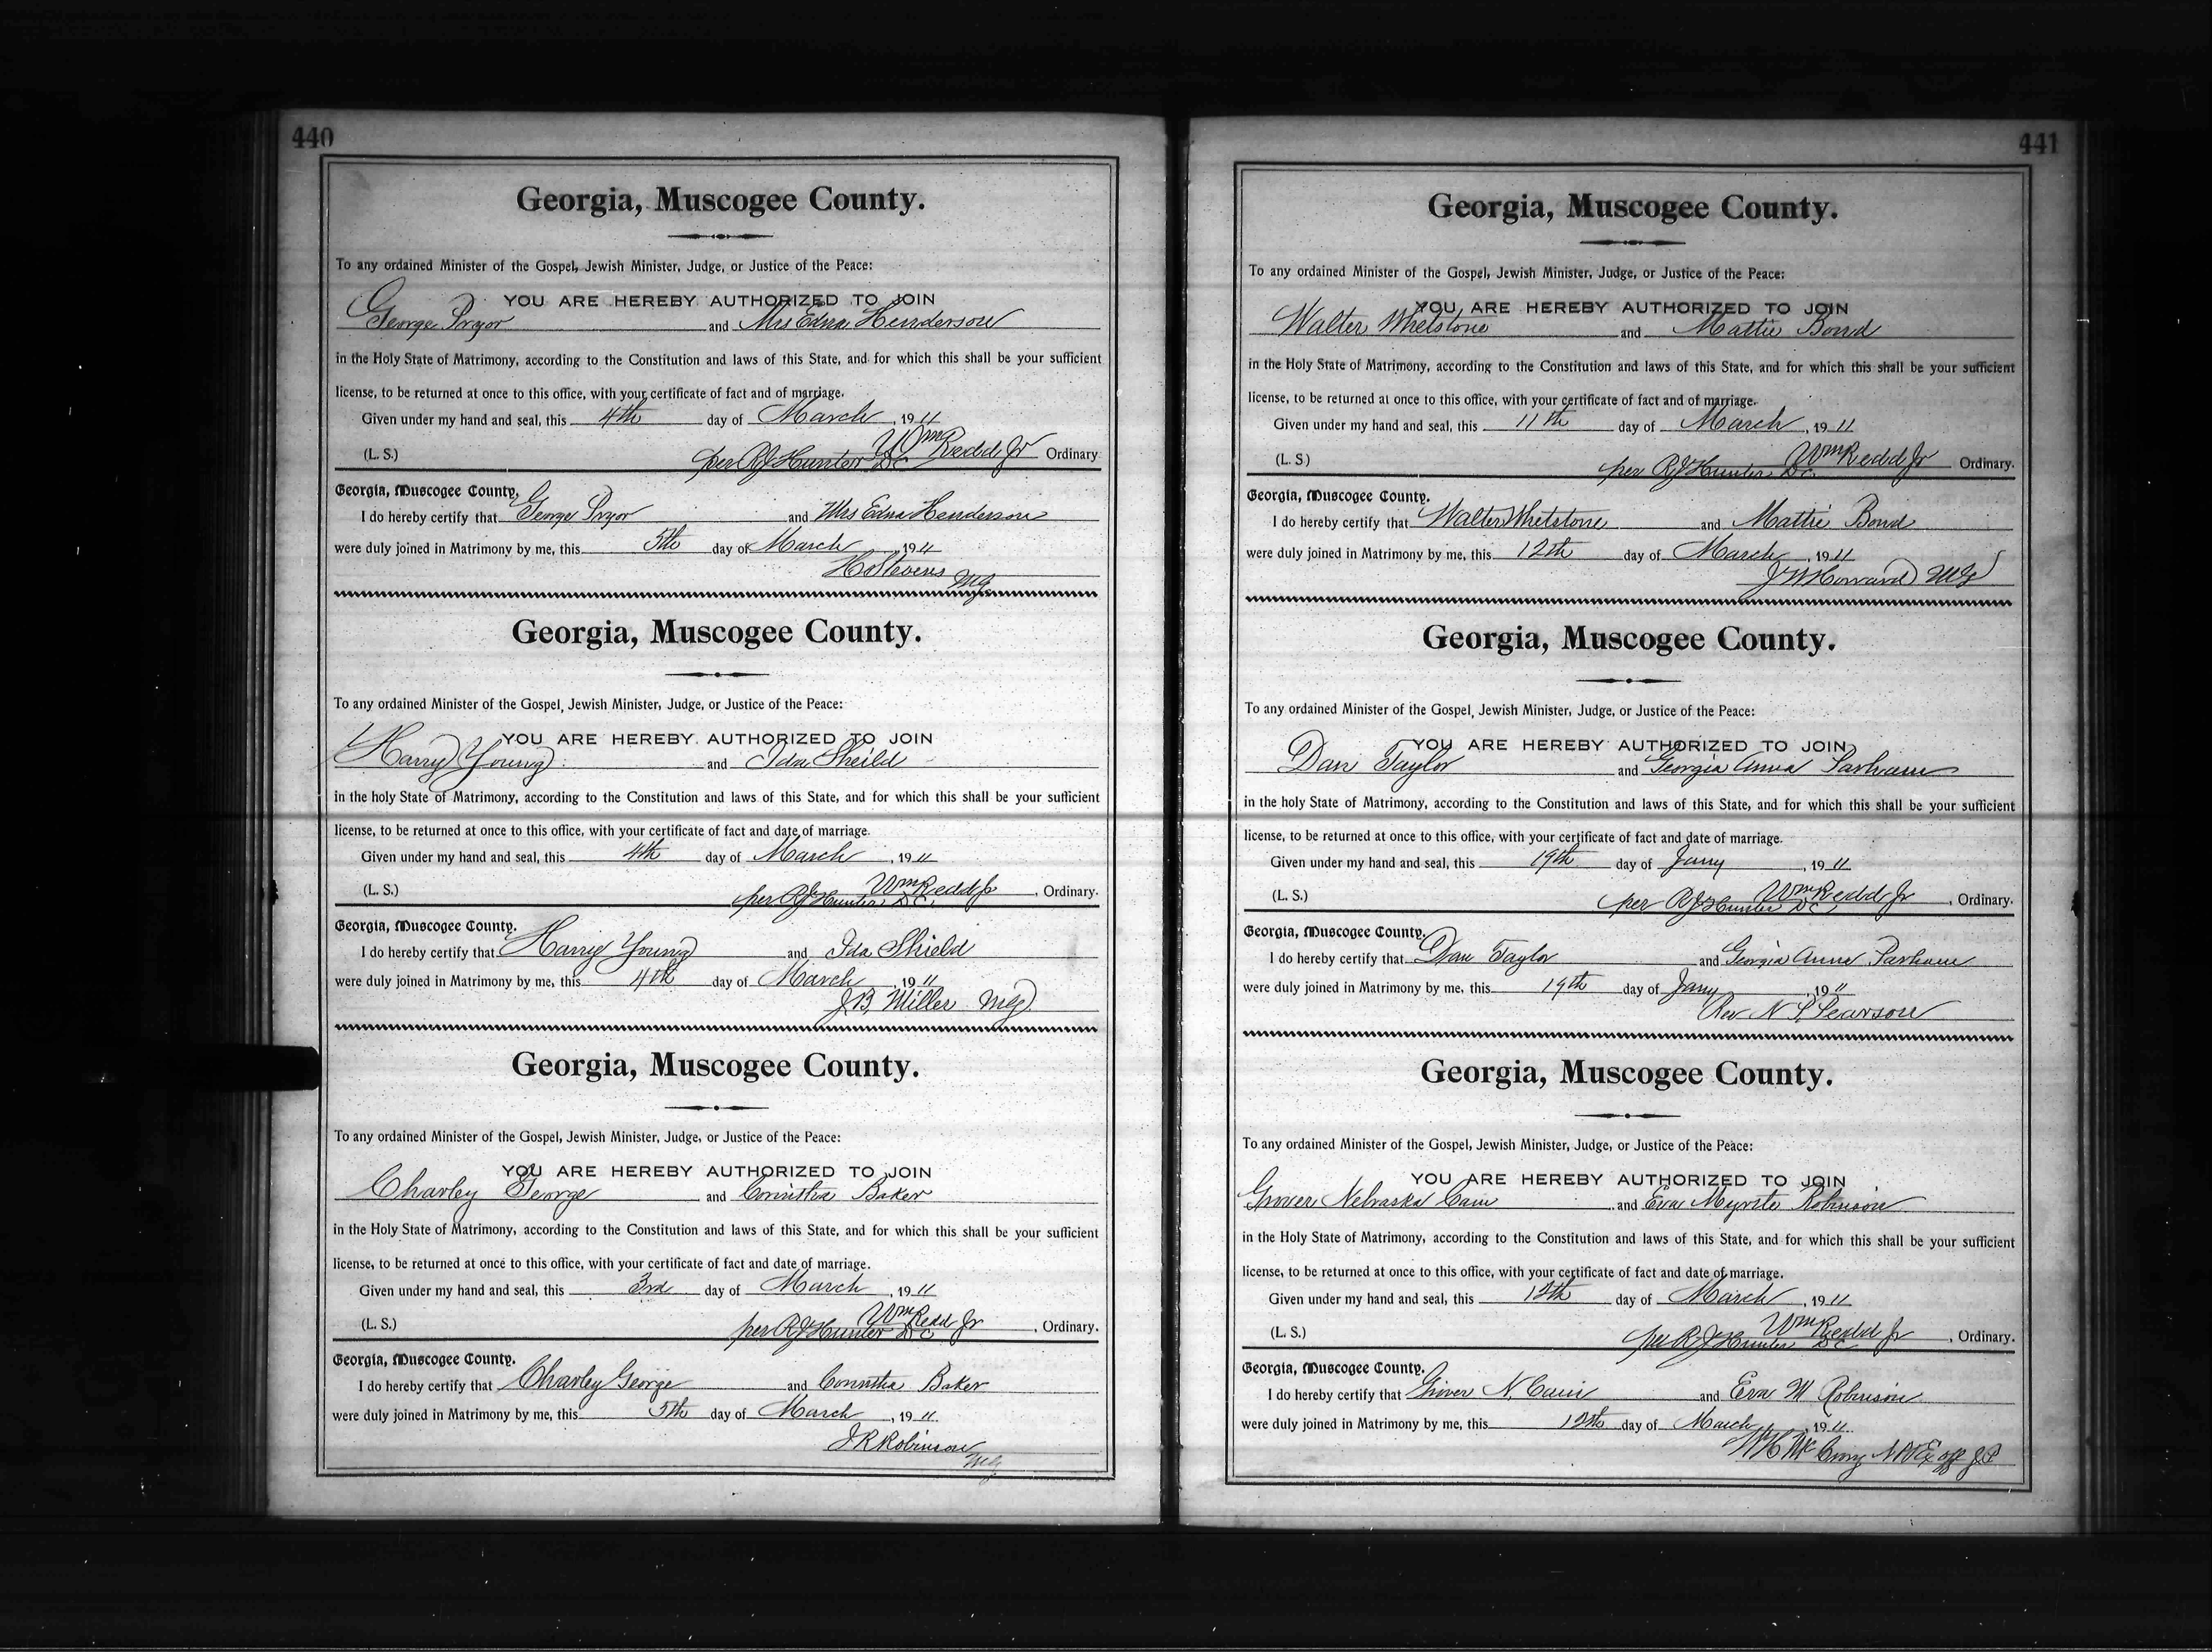 440
Georgia, Muscogee County.
To any ordained Minister of the Gospel, Jewish Minister, Judge, or Justice of the Peace:
YOU ARE HEREBY AUTHORIZED TO JOIN
George Pryor and Mrs Edna Henderson
in the Holy State of Matrimony, according to the Constitution and laws of this State, and for which this shall be your sufficient
license, to be returned at once to this office, with your certificate of fact and of marriage.
Given under my hand and seal, this 4th day of March, 1911
(L. S.) Wm Redd Jr Ordinary
per RJ Hunter D.C.
Georgia, Muscogee County.
I do hereby certify that George Pryor and Mrs Edna Henderson
were duly joined in Matrimony by me, this 5th day of March, 1911
Stevens MG
Georgia, Muscogee County.
To any ordained Minister of the Gospel, Jewish Minister, Judge, or Justice of the Peace:
YOU ARE HEREBY AUTHORIZED TO JOIN
Harry Young and Ida Sheild
in the holy State of Matrimony, according to the Constitution and laws of this State, and for which this shall be your sufficient
license, to be returned at once to this office, with your certificate of fact and date of marriage.
Given under my hand and seal, this 4th day of March, 1911
(L. S.) Wm Redd Jr, Ordinary.
per RJ Hunter D.C.
Georgia, Muscogee County.
I do hereby certify that Harry Young and Ida Shield
were duly joined in Matrimony by me, this 4th day of March, 1911
J.B. Miller MG
Georgia, Muscogee County.
To any ordained Minister of the Gospel, Jewish Minister, Judge, or Justice of the Peace:
YOU ARE HEREBY AUTHORIZED TO JOIN
Charley George and Baker
in the Holy State of Matrimony, according to the Constitution and laws of this State, and for which this shall be your sufficient
license, to be returned at once to this office, with your certificate of fact and date of marriage.
Given under my hand and seal, this 3rd day of March, 1911
(L. S.) Wm Redd Jr, Ordinary.
per RJ Hunter D.C.
Georgia, Muscogee County.
I do hereby certify that Charley George and Baker
were duly joined in Matrimony by me, this 5th day of March, 1911.
J R Robinson
MG
441
Georgia, Muscogee County.
To any ordained Minister of the Gospel, Jewish Minister, Judge, or Justice of the Peace:
YOU ARE HEREBY AUTHORIZED TO JOIN
Walter Whetstone and Mattie Bond
in the Holy State of Matrimony, according to the Constitution and laws of this State, and for which this shall be your sufficient
license, to be returned at once to this office, with your certificate of fact and of marriage.
Given under my hand and seal, this 11th day of March, 1911
(L. S) Wm Redd Jr Ordinary.
per RJ Hunter D.C.
Georgia, Muscogee County.
I do hereby certify that Walter Whetstone and Mattie Bond
were duly joined in Matrimony by me, this 12th day of March, 1911
J W Howard MG
Georgia, Muscogee County.
To any ordained Minister of the Gospel, Jewish Minister, Judge, or Justice of the Peace:
YOU ARE HEREBY AUTHORIZED TO JOIN
Dan Taylor and Georgia Anna Parham
in the holy State of Matrimony, according to the Constitution and laws of this State, and for which this shall be your sufficient
license, to be returned at once to this office, with your certificate of fact and date of marriage.
Given under my hand and seal, this 19th day of Jany, 1911
(L. S.) Wm Redd Jr, Ordinary.
per RJ Hunter D.C.
Georgia, Muscogee County.
I do hereby certify that Dan Taylor and Georgia Anna Parham
were duly joined in Matrimony by me, this 19th day of Jany, 1911
Rev N. P. Pearson
Georgia, Muscogee County.
To any ordained Minister of the Gospel, Jewish Minister, Judge, or Justice of the Peace:
YOU ARE HEREBY AUTHORIZED TO JOIN
Grover Nebraska Cain and Eva Myrtle Robinson
in the Holy State of Matrimony, according to the Constitution and laws of this State, and for which this shall be your sufficient
license, to be returned at once to this office, with your certificate of fact and date of marriage.
Given under my hand and seal, this 12th day of March, 1911
(L. S.) Wm Redd Jr, Ordinary.
per RJ Hunter D.C.
Georgia, Muscogee County.
I do hereby certify that Grover N. Cain and Eva M Robinson
were duly joined in Matrimony by me, this 12th day of March, 1911.
NP Ex off J P